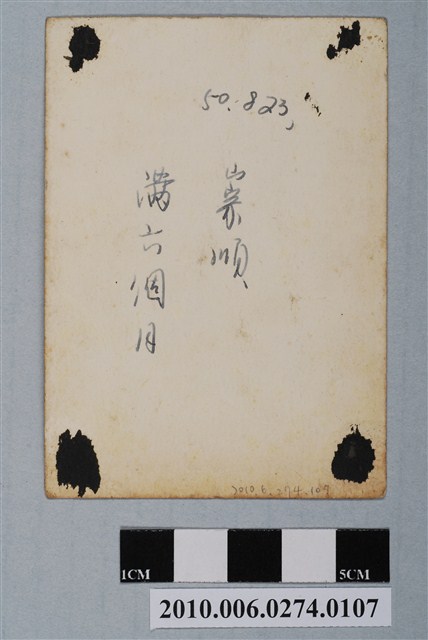 50.823,
崇順
滿六個月
2010.6.274.107
1CM
5CM
2010.006.0274.0107